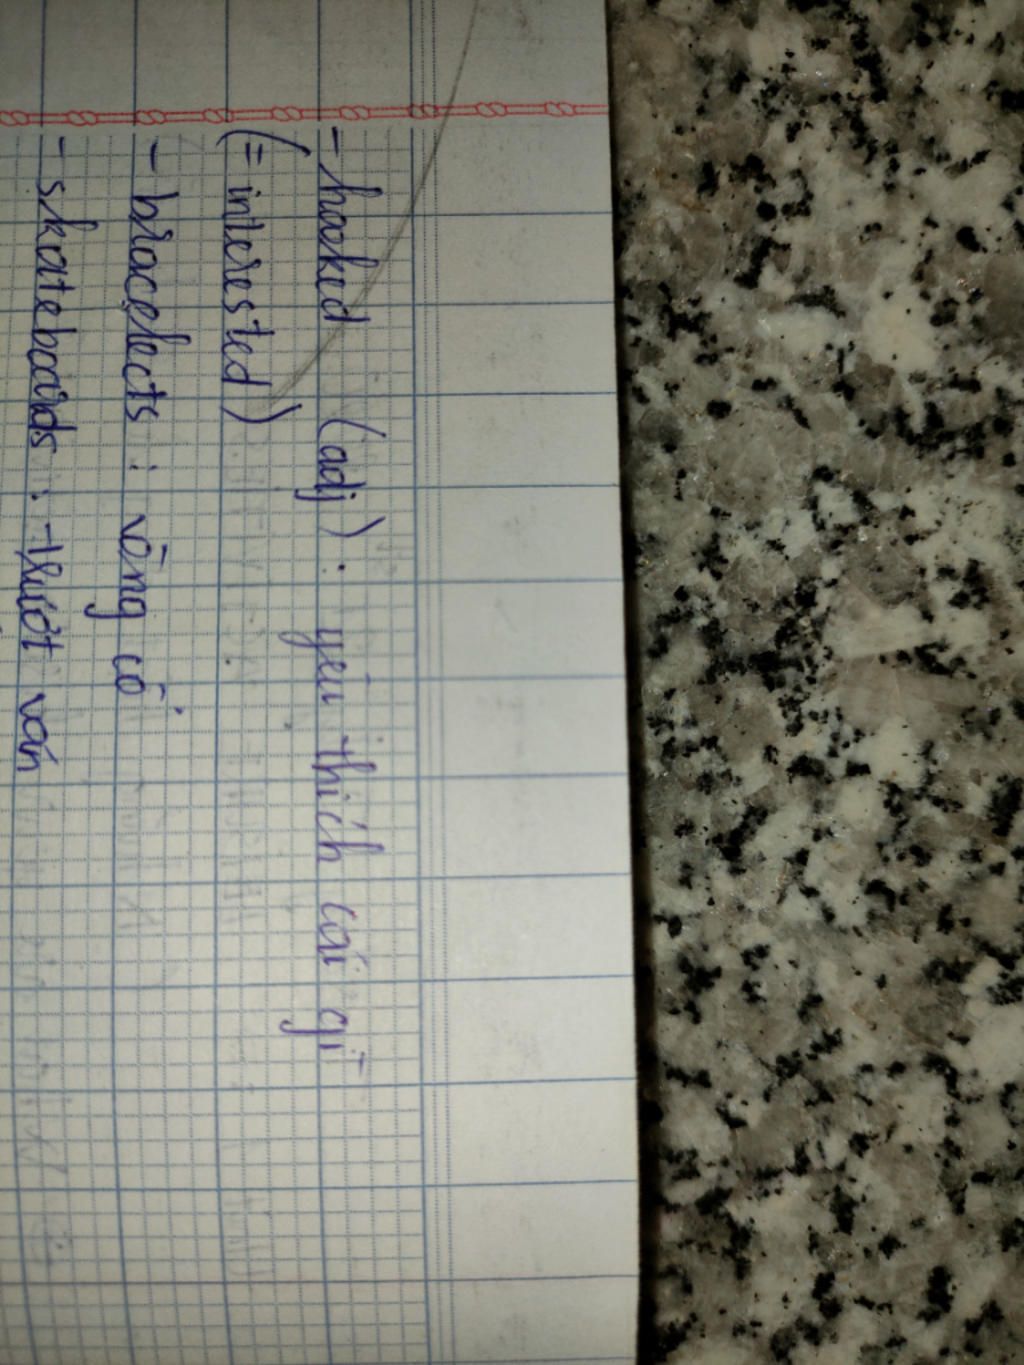 - hooked (adj) : yêu thích cái gì
(= interested)
- bracelects : vòng cổ
- skateboards : trượt ván